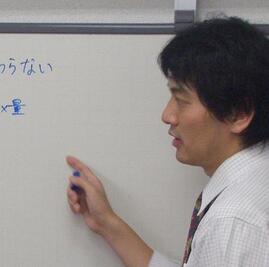 らない
×量